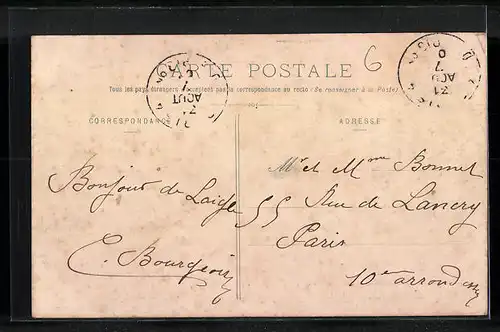 6
CARTE POSTALE
Tous les pays étrangers n'acceptent pas la correspondance au recto (Se renseigner à la Poste)
CORRESPONDANCE
ADRESSE
AOUT
31
AOU
Bonjour de Laigle
C. Bourgeois
Mr et Mme Bonnet
55 Rue de Lancry
Paris
10e arrond